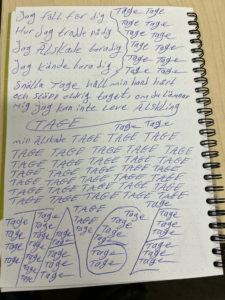 Jag fall för dig Tage Tage
Hur Jag trodde på dig Tage Tage
Tage Tage
Jag Älskade bara dig Tage Tage
Tage Tage
Jag kände bara dig Tage Tage
Snälla Tage håll min hand hård
och aldrig om du lämnar
mig jag kan inte leva Älskling
TAGE Tage Tage
min älskade TAGE TAGE TAGE
TAGE TAGE TAGE TAGE TAGE TAGE
TAGE TAGE TAGE TAGE TAGE TAGE
TAGE TAGE TAGE TAGE TAGE TAGE
TAGE TAGE TAGE TAGE TAGE TAGE
TAGE TAGE TAGE TAGE TAGE TAGE
Tage Tage TAGE Tage Tage
Tage Tage TAGE Tage Tage
Tage Tage Tage Tage Tage
Tage Tage Tage Tage Tage
Tage Tage Tage Tage Tage
Tage Tage Tage Tage